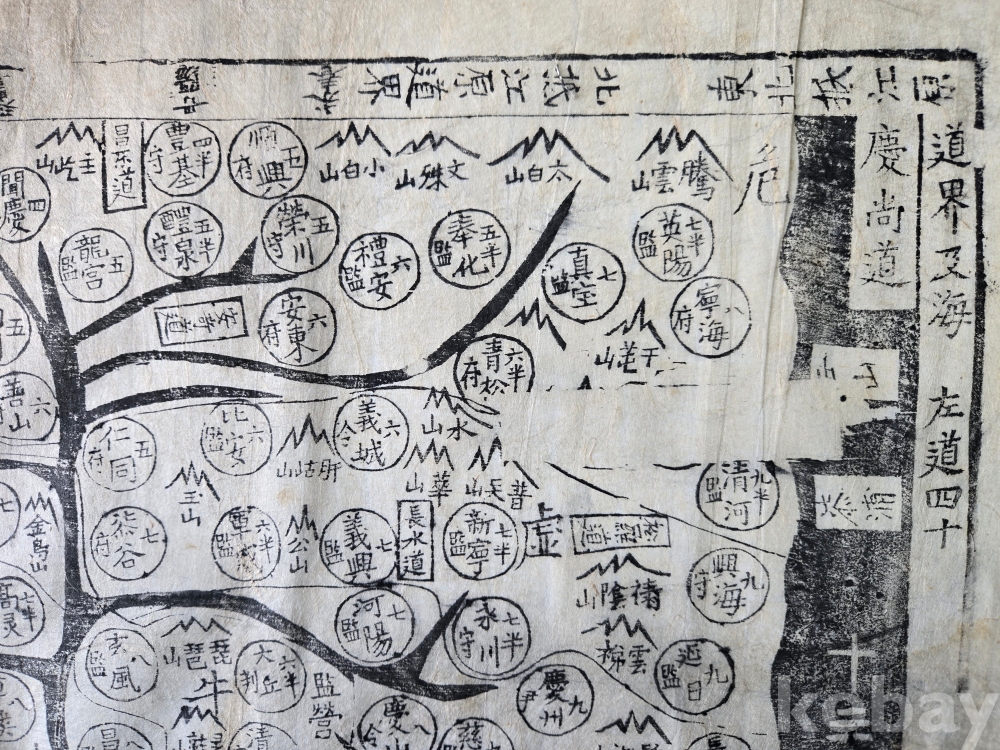 慶尚道
道界及海 左道四十
江原道界
北抵
危
騰雲山
太白山
文殊山
小白山
順興 五 府
豊基 四半 守
昌樂道
主屹山
聞慶 四
英陽 七半 監
真宝 七 監
奉化 五半 監
禮安 六 監
榮川 五 守
醴泉 五半 守
龍宮 五 監
寧海 八 府
安東 六 府
安奇道
青松 六半 府
于山
水山
義城 六 令
比安 六 監
仁同 五 府
善山 六
清河 九半 監
普天山
華山
玉山
新寧 七半 監
長水道
義興 七 監
公山
軍威 六半 監
柒谷 七 府
金烏山
興海 九 守
禱陰山
永川 七半 守
河陽 七 監
高灵 七半
雲梯山
延日 九 監
慶州 九 尹
監營
大丘 六半 判
琵琶山
玄風 八 監
牛
慶山 八 令
慈
清
昌
kebay